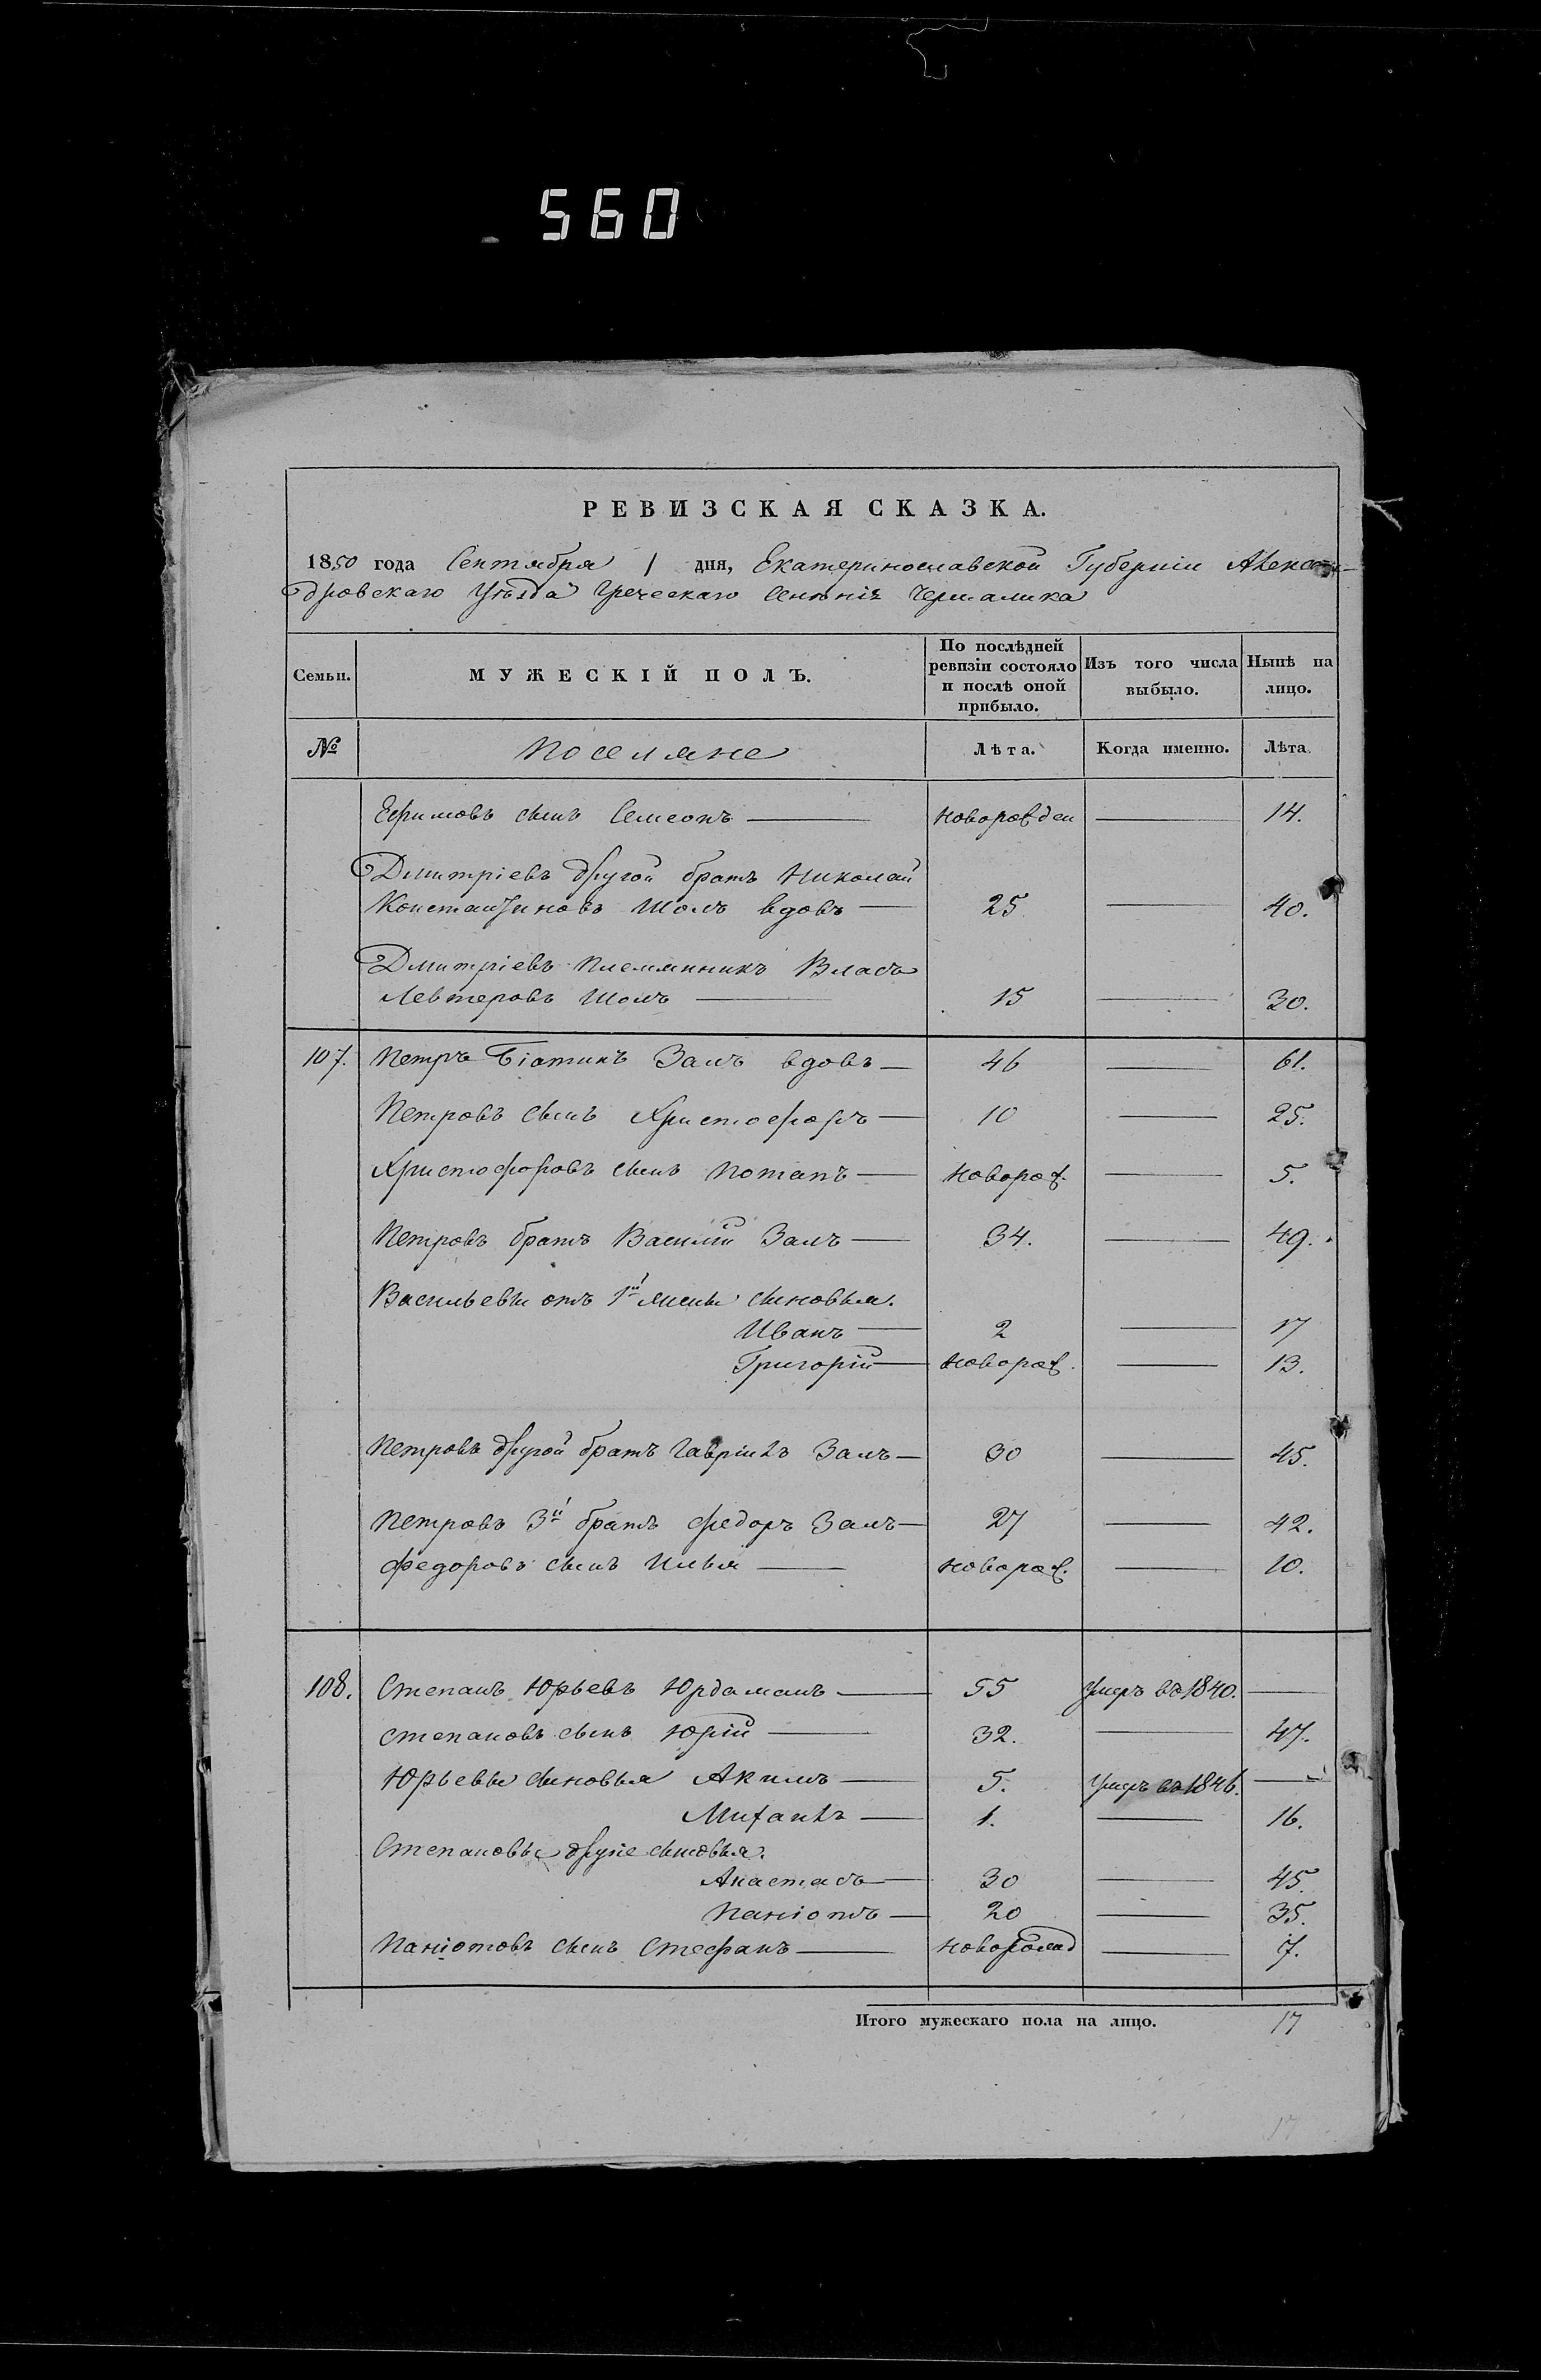 560
РЕВИЗСКАЯ СКАЗКА.
1850 года Сентября 1 дня, Екатеринославской Губерніи Алексан-
дровскаго Уѣзда Греческаго Селенія Чермалика
Семьи. МУЖЕСКІЙ ПОЛЪ. По послѣдней ревизіи состояло и послѣ оной прибыло. Изъ того числа выбыло. Нынѣ на лицо.
№ Поселяне Лѣта. Когда именно. Лѣта
Ефимовъ сынъ Семеонъ — новорожден — 14.
Дмитріевъ другой братъ Николай
Константиновъ Шолъ вдовъ — 25 — 40.
Дмитріевъ племянникъ Власъ
Левтеровъ Шолъ — 15 — 30.
107. Петръ Біатикъ Залъ вдовъ — 46 — 61.
Петровъ сынъ Христофоръ — 10 — 25.
Христофоровъ сынъ Потапъ — новорож. — 5.
Петровъ братъ Василій Залъ — 34. — 49.
Васильевы отъ 1й жены сыновья.
Иванъ — 2 — 17
Григорій — новорож. — 13.
Петровъ другой братъ Гавріилъ Залъ — 30 — 45.
Петровъ 3й братъ Федоръ Залъ — 27 — 42.
Федоровъ сынъ Илья — новорож. — 10.
108. Степанъ Юрьевъ Юрдамаъ — 55 Умеръ въ 1840. —
Степановъ сынъ Юрій — 32. — 47.
Юрьевы сыновья Акимъ — 5. Умеръ въ 1846. —
Михаилъ — 1. — 16.
Степановы другіе сыновья.
Анастасъ — 30 — 45.
Паніотъ — 20 — 35.
Паніотовъ сынъ Стефанъ — новорожд — 7.
Итого мужескаго пола на лицо. 17
17